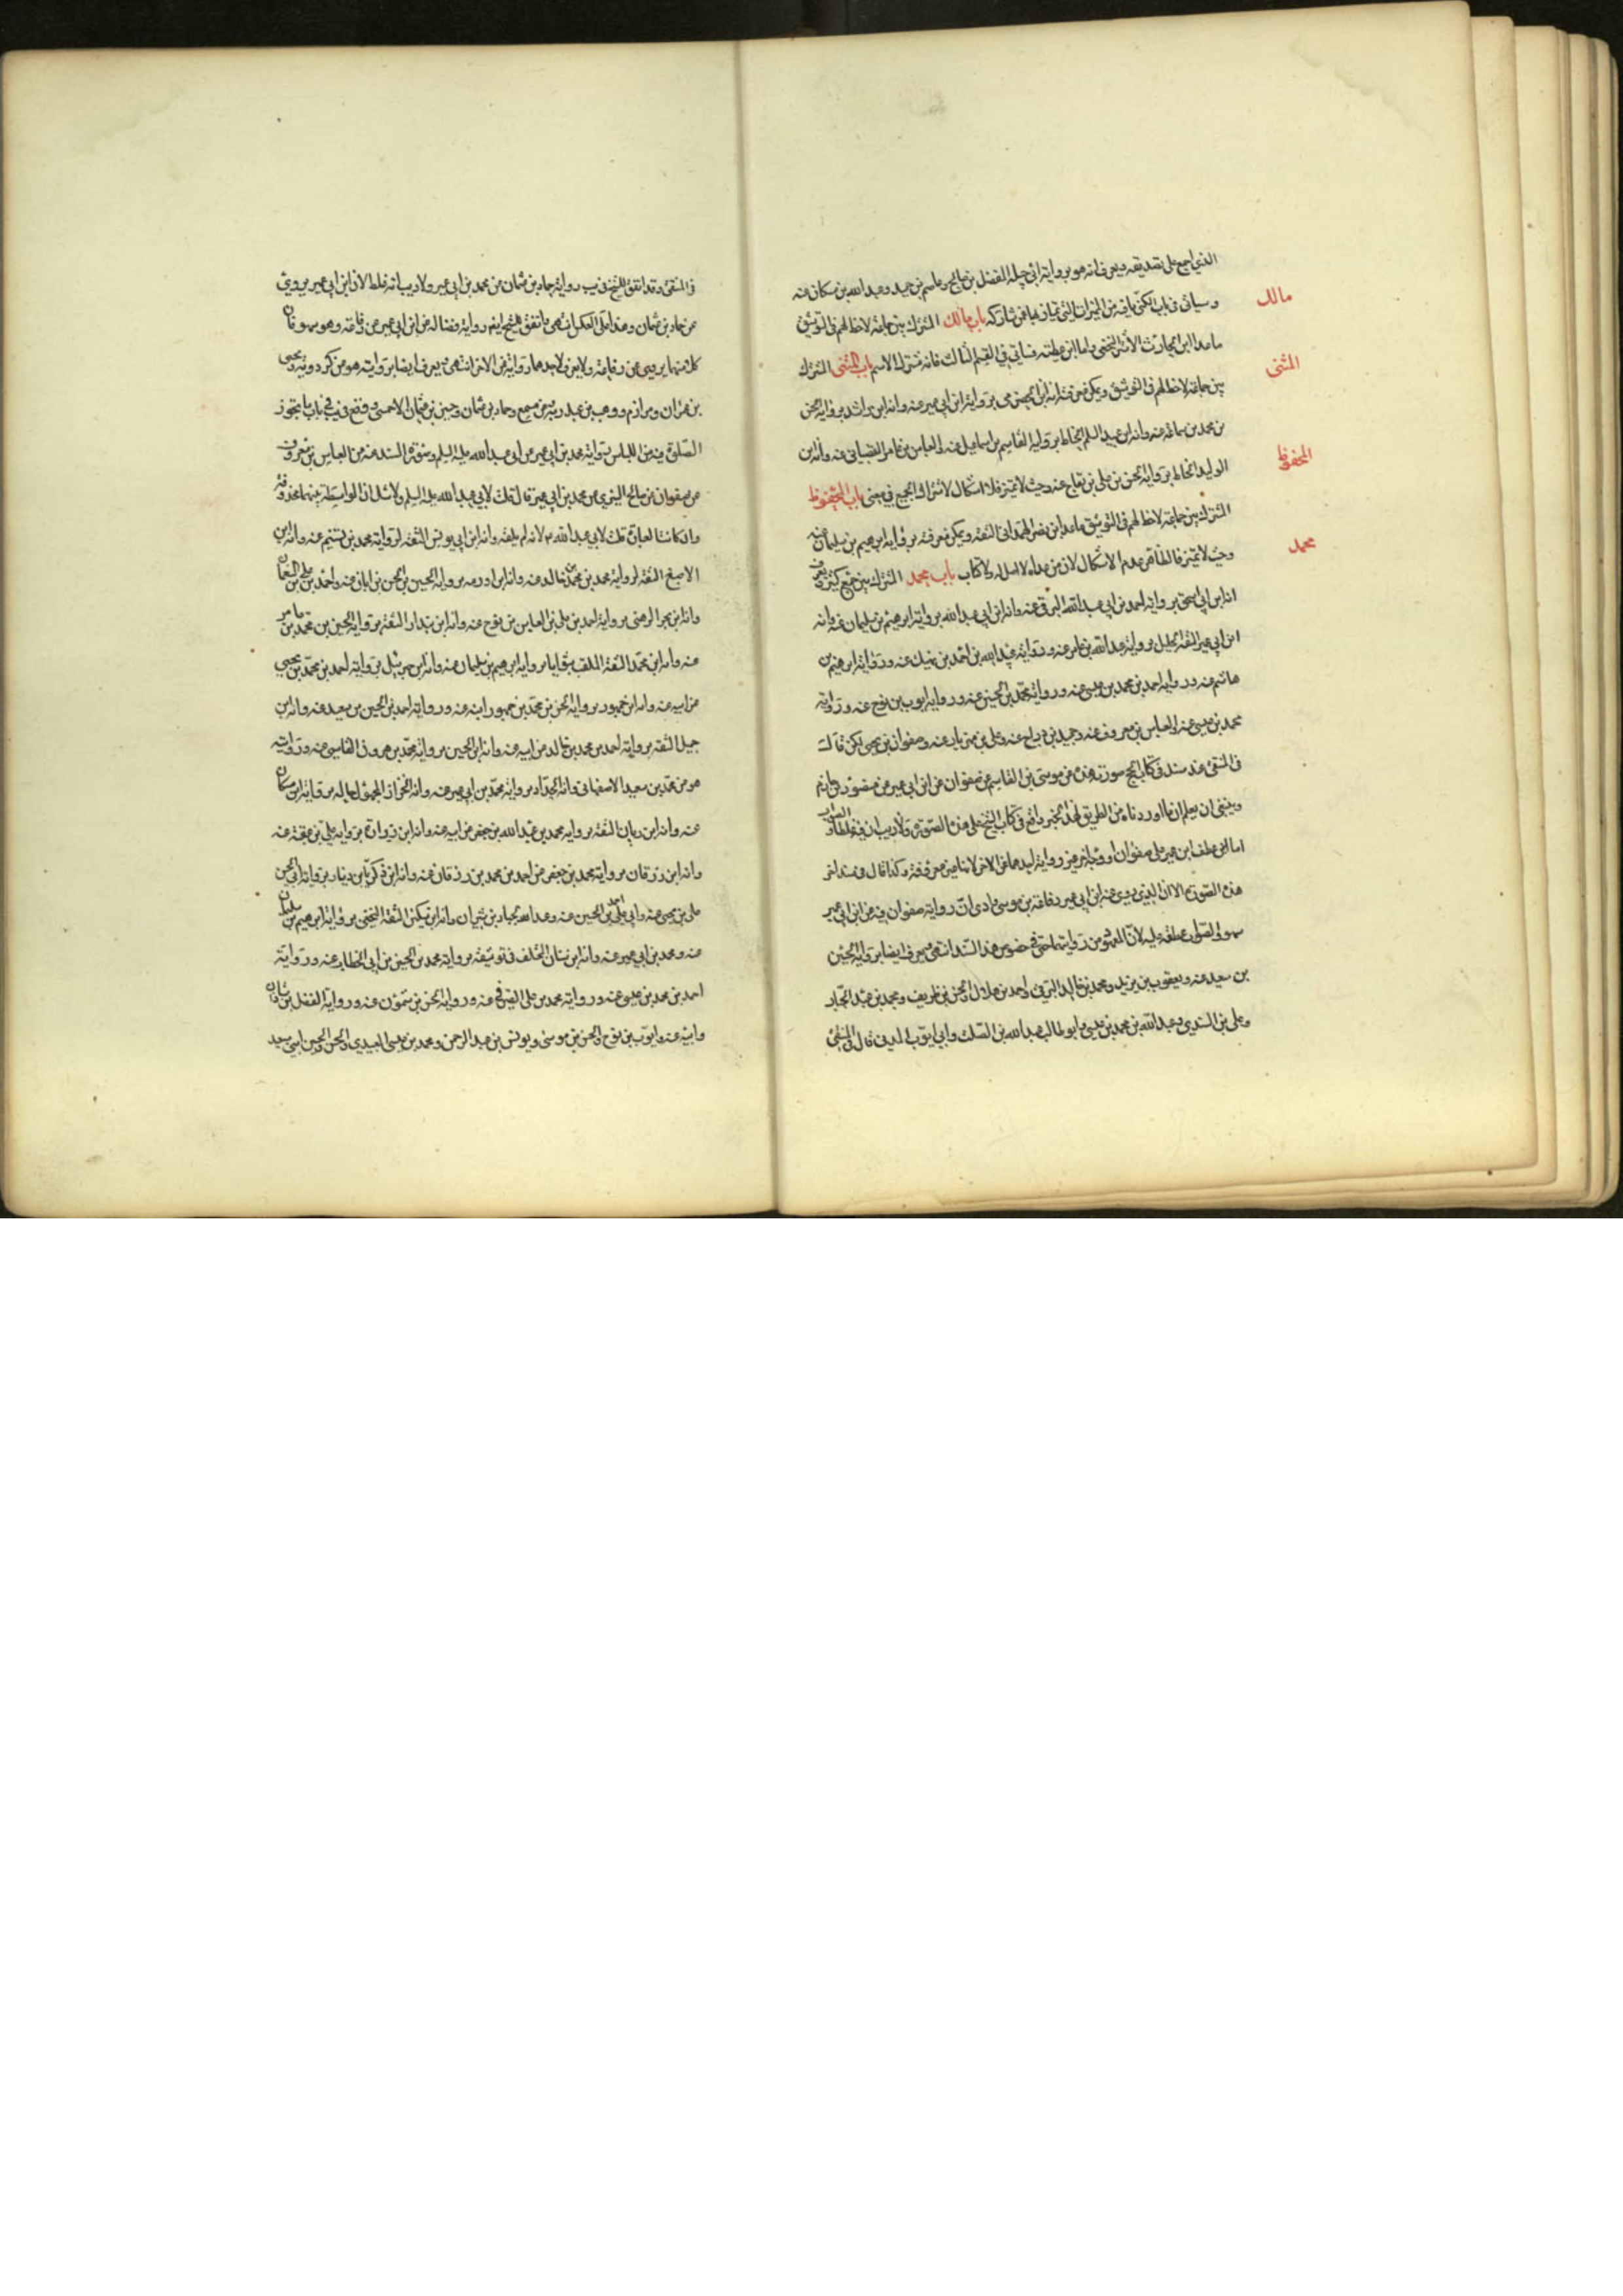 الذي اجمع على تصديقه ويعرف انه هو برواية ابي جميلة المفضل بن صالح وعاصم بن حميد وعبدالله بن مسكان عنه
مالك
وسيأتي في باب الكنى باقية من الميزان التي يمتاز بها عمن شاركه باب مالك المشترك بين جماعة لاحظ لهم في التوثيق
ما عدا ابن الحارث الأشتر النخعي واما ابن عطية فسيأتي في القسم الثالث فانه مشترك الاسم باب المثنى المشترك
المثنى
بين جماعة لاحظ لهم في التوثيق ويمكن معرفة انه ابن الحضرمي برواية ابن ابي عمير عنه وانه ابن راشد برواية الحسن
بن محمد بن سماعة عنه وانه ابن عبد السلم الحناط برواية القاسم بن اسماعيل عنه والعباس بن عامر القصباني عنه وانه ابن
الوليد الحناط برواية الحسن بن علي بن بقاح عنه وحيث لا تميز فلا اشكال لاشتراك الجميع في معنى باب المحفوظ
المحفوظ
المشترك بين جماعة لاحظ لهم في التوثيق ما عدا ابن نصر الهمداني الثقة ويمكن معرفته برواية ابرهيم بن سليمان عنه
وحيث لا تميز فالظاهر عدم الاشكال لان من عداه لا اصل له ولا كتاب باب محمد المشترك بين جمع كثير ويعرف
محمد
انه ابن ابي اسحق برواية احمد بن ابي عبدالله البرقي عنه وانه ابن ابي عبدالله برواية ابرهيم بن سليمان عنه وانه
ابن ابي عمير الثقة الجليل برواية عبدالله بن عامر عنه ورواية عبدالله بن احمد بن نهيك عنه ورواية ابرهيم بن
هاشم عنه ورواية احمد بن محمد بن عيسى عنه ورواية محمد بن الحسين عنه ورواية ايوب بن نوح عنه ورواية
محمد بن عيسى عنه والعباس بن معروف عنه وحميد بن زياد عنه وعلي بن مهزيار عنه وصفوان بن يحيى لكن قال
في المنتقى عند سند في كتاب الحج صورته هذه عن موسى بن القاسم عن صفوان عن ابن ابي عمير عن منصور بن حازم
وينبغي ان يعلم ان ما اوردناه من الطريق لهذا الخبر واقع في كتاب الشيخ على هذه الصورة ولا ريب ان فيه غلطا والصواب
اما ابن عطف ابن عمير على صفوان او وجابر عن رواية احدهما عن الاخر لانها غير معروفة وكذا قال في سند اخر
هذه الصورة الا ان الذي يروي عنه ابن ابي عمير رفاعة بن موسى وادى ان رواية صفوان فيه عن ابن ابي عمير
سهو والصواب عطفه عليه لان المعهود من روايتهما حتى في خصوص هذا السند انتهى ويعرف ايضا برواية الحسين
بن سعيد عنه ويعقوب بن يزيد ومحمد بن خالد البرقي واحمد بن هلال والحسن بن ظريف ومحمد بن عبد الجبار
وعلي بن السندي وعبدالله بن محمد بن عيسى وابو طالب عبدالله بن الصلت وابي ايوب المديني قال في المنتقى
في المنتقى وقد اتفق للشيخ في يب رواية حماد بن عثمان عن محمد بن ابي عمير ولا ريب انه غلط لان ابن ابي عمير يروي
عن حماد بن عثمان وهذا على العكس انتهى واتفق للشيخ ايضا رواية فضالة عن ابن ابي عمير عن رفاعة وهو سهو فان
كلا منهما يروي عن رفاعة ولا يعرف لاحدهما رواية عن الاخر انتهى ويعرف ايضا بروايته هو عن كردويه ويحيى
بن عمران ومرازم ووهب بن عبد ربه عن مسمع وحماد بن عثمان وحسين بن عثمان الاحمسي ووقع في يب في باب ما يجوز
الصلوة فيه من اللباس برواية محمد بن ابي عمير عن ابي عبدالله عليه السلم وصورة السند عنه عن العباس بن معروف
عن صفوان عن صالح النيري عن محمد بن ابي عمير قال قلت لابي عبدالله عليه السلم ولا شك ان الواسطة بينهما محذوفة
والكانت العبارة قلت لابي عبدالله ع لانه لم يلقه وانه ابن ابي يونس الثقة لرواية محمد بن تسنيم عنه وانه ابن
الاصبغ الثقة لرواية محمد بن محمد بن خالد عنه وانه ابن اورمه برواية الحسين بن الحسن بن ابان عنه واحمد بن علي بن النعمان
وانه ابن بحر الرهني برواية احمد بن علي بن العباس بن نوح عنه وانه ابن بندار الثقة برواية الحسين بن محمد بن عامر
عنه وانه ابن محمد الثقة الملقب بثوابا برواية ابرهيم بن سليمان عنه وانه ابن جبرئيل برواية احمد بن محمد بن يحيى
عن ابيه عنه وانه ابن جمهور برواية الحسن بن محمد بن جمهور ابنه عنه ورواية احمد بن الحسين بن سعيد عنه وانه ابن
جميل الثقة برواية احمد بن محمد بن خالد عن ابيه عنه وانه ابن الحسين برواية محمد بن هرون الفاسي عنه وروايته
هو عن محمد بن سعيد الاصفهاني وانه الحداد برواية محمد بن ابي عمير عنه وانه الخزاز المجهول حاله برواية ابن مسكان
عنه وانه ابن ريان الثقة برواية محمد بن عبدالله بن جعفر عن ابيه عنه وانه ابن زروان برواية علي بن عقبة عنه
وانه ابن رزقان برواية محمد بن جعفر عن احمد بن محمد بن رزقان عنه وانه ابن زكريا بن دينار برواية ابي الحسين
علي بن يحيى عنه وابي علي احمد بن الحسين عنه وعبدالله الجبار بن شيران وانه ابن سكين الثقة النخعي برواية ابرهيم بن سليمان
عنه ومحمد بن ابي عمير عنه وانه ابن سنان المختلف في توثيقه برواية محمد بن الحسين بن ابي الخطاب عنه ورواية
احمد بن محمد بن عيسى عنه ورواية محمد بن علي الصيرفي عنه ورواية الحسن بن شمون عنه ورواية الفضل بن شاذان
وابيه عنه وايوب بن نوح والحسن بن موسى ويونس بن عبد الرحمن ومحمد بن عيسى العبيدي والحسن والحسين ابني سعيد